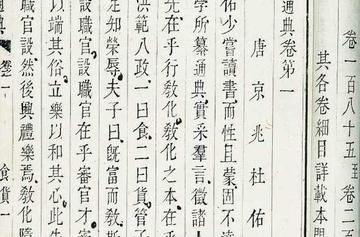 卷一百八十五至卷二
其各卷細目詳載本門
通典卷第一
唐京兆杜佑
佑少嘗讀書而性且蒙固不達
學所纂通典實采羣言徵諸人
先在乎行敎化敎化之本在乎
洪範八政一曰食二曰貨管子
足知榮辱夫子曰旣富而敎斯
設職官設職官在乎審官才
以端其俗立樂以和其心此先
職官設然後興禮樂焉敎化隳
卷一 食貨一